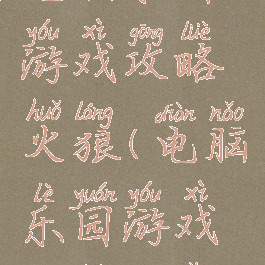 yóu xì gōng lüè
游戏攻略
huǒ láng diàn nǎo
火狼(电脑
lè yuán yóu xì
乐园游戏